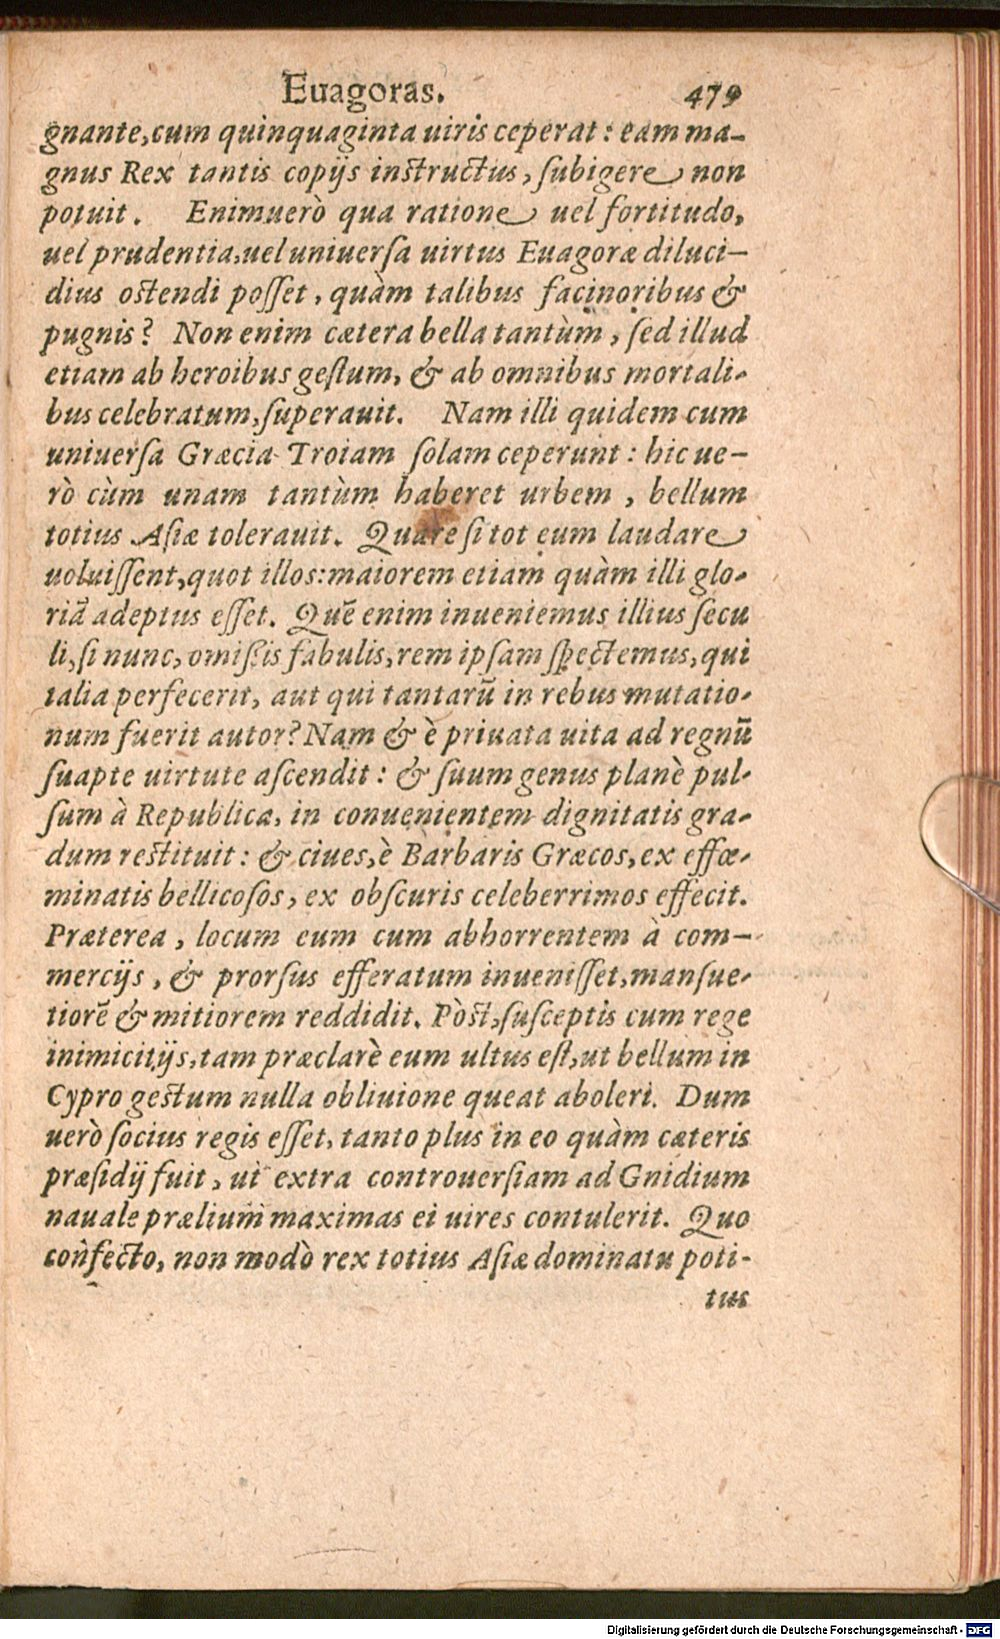 Euagoras. 479
gnante, cum quinquaginta uiris ceperat: eam ma-
gnus Rex tantis copijs instructus, ſubigere non
potuit. Enimuerò qua ratione uel fortitudo,
uel prudentia, uel uniuerſa uirtus Euagoræ diluci-
dius ostendi poſſet, quàm talibus facinoribus &
pugnis? Non enim cætera bella tantùm, ſed illud
etiam ab heroibus geſtum, & ab omnibus mortali-
bus celebratum, ſuperauit. Nam illi quidem cum
uniuerſa Græcia Troiam ſolam ceperunt: hic ue-
rò cùm unam tantùm haberet urbem, bellum
totius Aſiæ tolerauit. Quare ſi tot eum laudare
uoluiſſent, quot illos: maiorem etiam quàm illi glo-
riã adeptus eſſet. Quẽ enim inueniemus illius ſecu
li, ſi nunc, omiſsis fabulis, rem ipſam ſpectemus, qui
talia perfecerit, aut qui tantarũ in rebus mutatio-
num fuerit autor? Nam & è priuata uita ad regnũ
ſuapte uirtute aſcendit: & ſuum genus planè pul-
ſum à Republica, in conuenientem dignitatis gra-
dum restituit: & ciues, è Barbaris Græcos, ex effœ-
minatis bellicoſos, ex obſcuris celeberrimos effecit.
Præterea, locum eum cum abhorrentem à com-
mercijs, & prorſus efferatum inueniſſet, manſue-
tiorẽ & mitiorem reddidit. Pòst, ſuſceptis cum rege
inimicitijs, tam præclarè eum ultus eſt, ut bellum in
Cypro gestum nulla obliuione queat aboleri. Dum
uerò ſocius regis eſſet, tanto plus in eo quàm cæteris
præſidij fuit, ut extra controuerſiam ad Gnidium
nauale prælium maximas ei uires contulerit. Quo
confecto, non modò rex totius Aſiæ dominatu poti-
tus
Digitalisierung gefördert durch die Deutsche Forschungsgemeinschaft - DFG